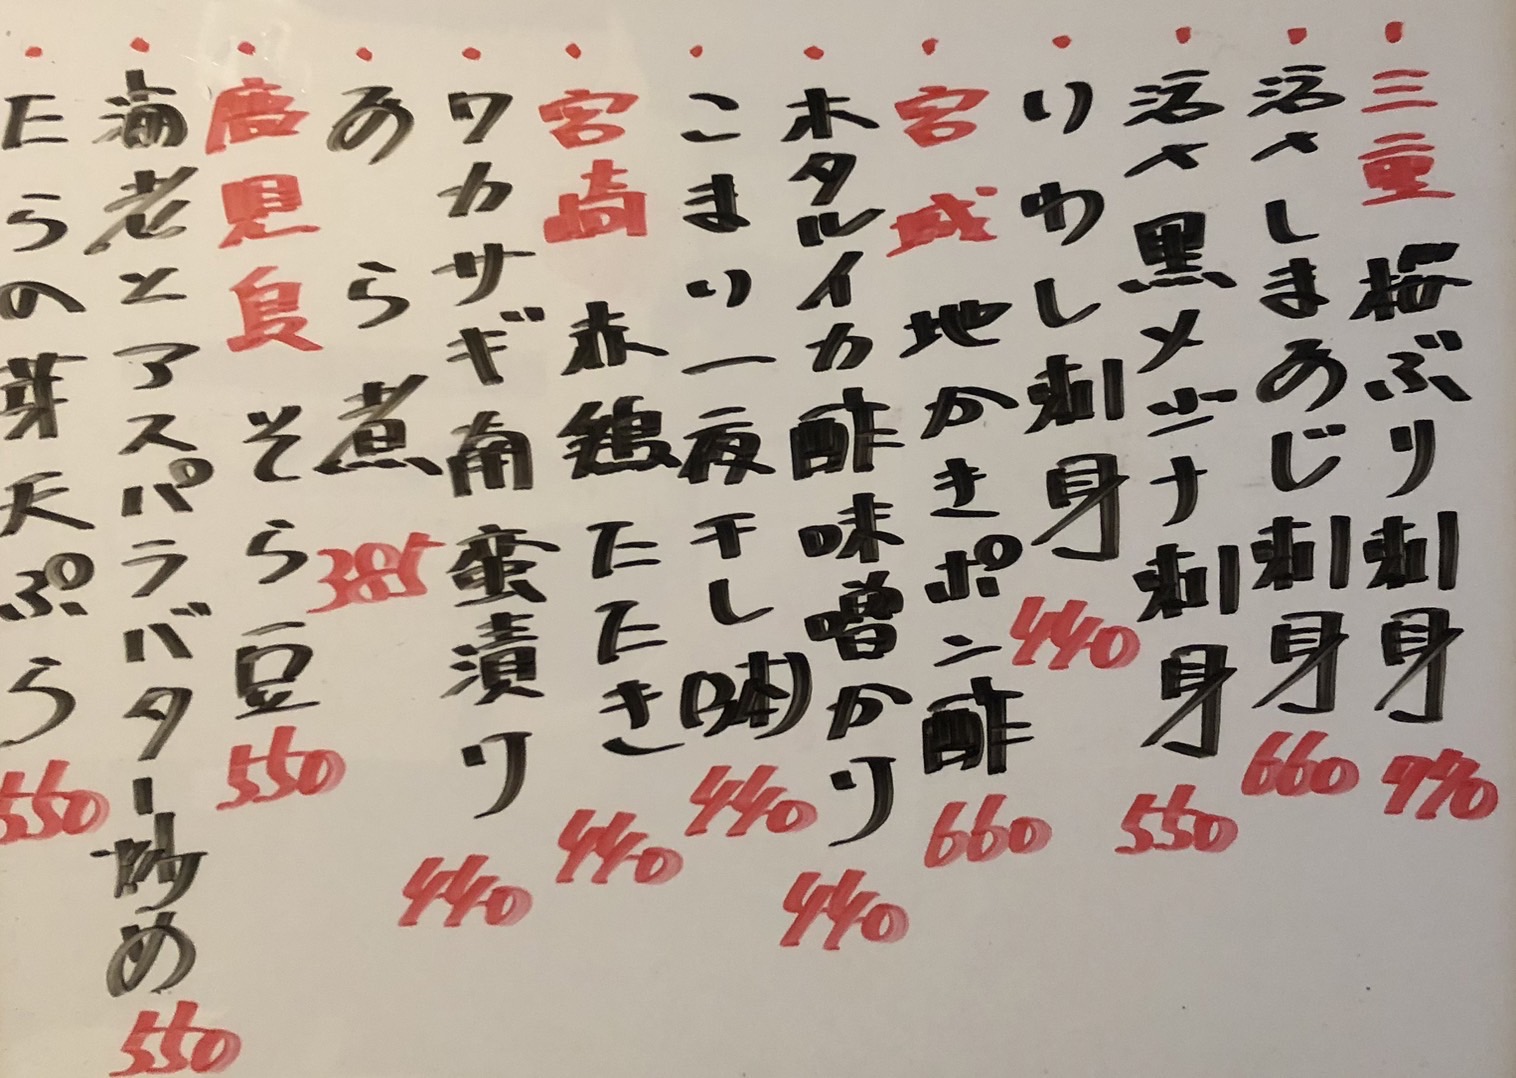 ・三重 桜ぶり刺身 770
・活〆しまあじ刺身 660
・活〆黒メジナ刺身 550
・いわし刺身 440
・宮城 地かきポン酢 660
・ホタルイカ酢味噌かけ 440
・こまい一夜干し(3本) 440
・宮崎 赤鶏たたき 440
・ワカサギ南蛮漬け 440
・あら煮 385
・鹿児島 そら豆 550
・海老とアスパラバター炒め 550
・たらの芽天ぷら 550